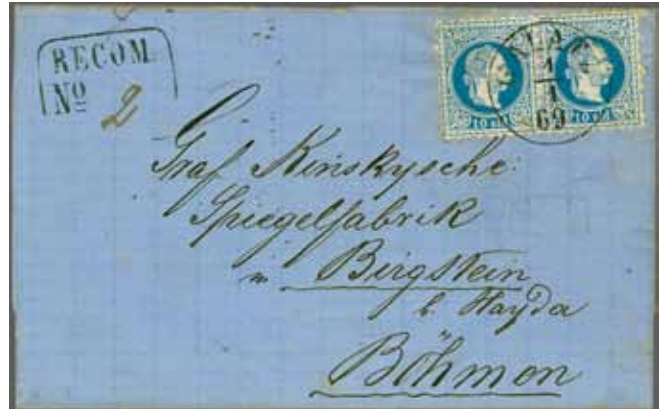 RECOM
No 2
10 10
1
1
69
Graf Kinskysche
Spiegelfabrik
in Birgstein
b. Hayda
Böhmen